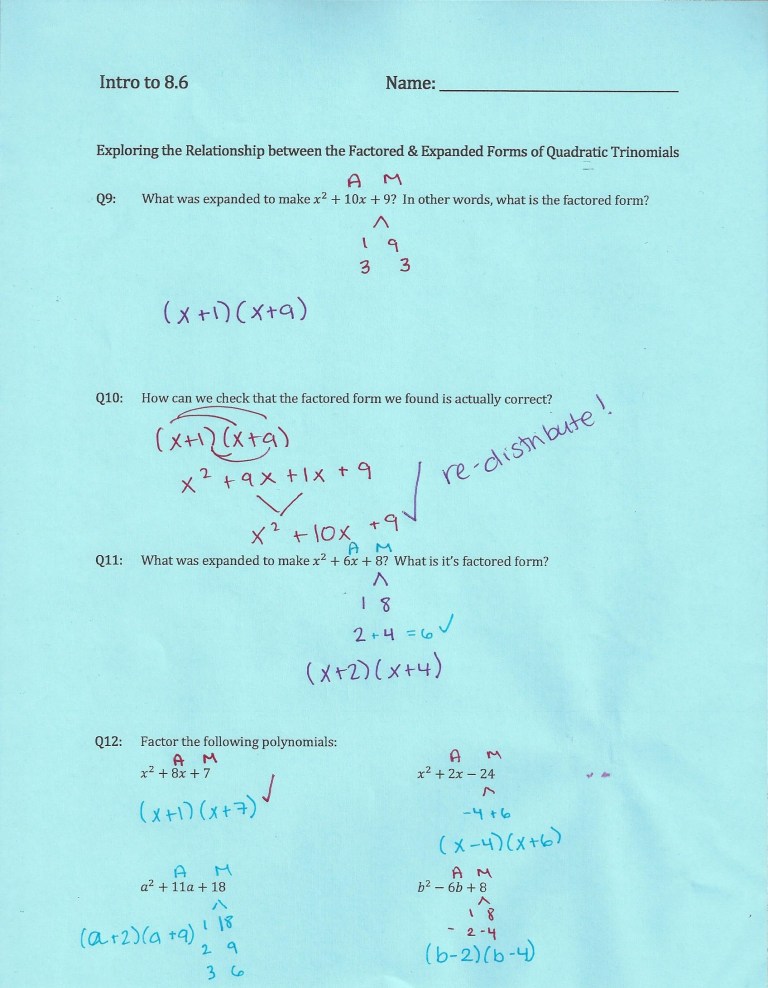 Intro to 8.6 Name:
Exploring the Relationship between the Factored & Expanded Forms of Quadratic Trinomials
A M
Q9: What was expanded to make x² + 10x + 9? In other words, what is the factored form?
1 9
3 3
(x+1)(x+9)
Q10: How can we check that the factored form we found is actually correct?
(x+1)(x+9)
re-distribute!
x² + 9x + 1x + 9
x² + 10x + 9 ✓
A M
Q11: What was expanded to make x² + 6x + 8? What is it's factored form?
1 8
2 + 4 = 6 ✓
(x+2)(x+4)
Q12: Factor the following polynomials:
A M
x² + 8x + 7
(x+1)(x+7) ✓
A M
x² + 2x − 24
-4 +6
(x-4)(x+6)
A M
a² + 11a + 18
(a+2)(a+9)
1 18
2 9
3 6
A M
b² − 6b + 8
1 8
-2 -4
(b-2)(b-4)